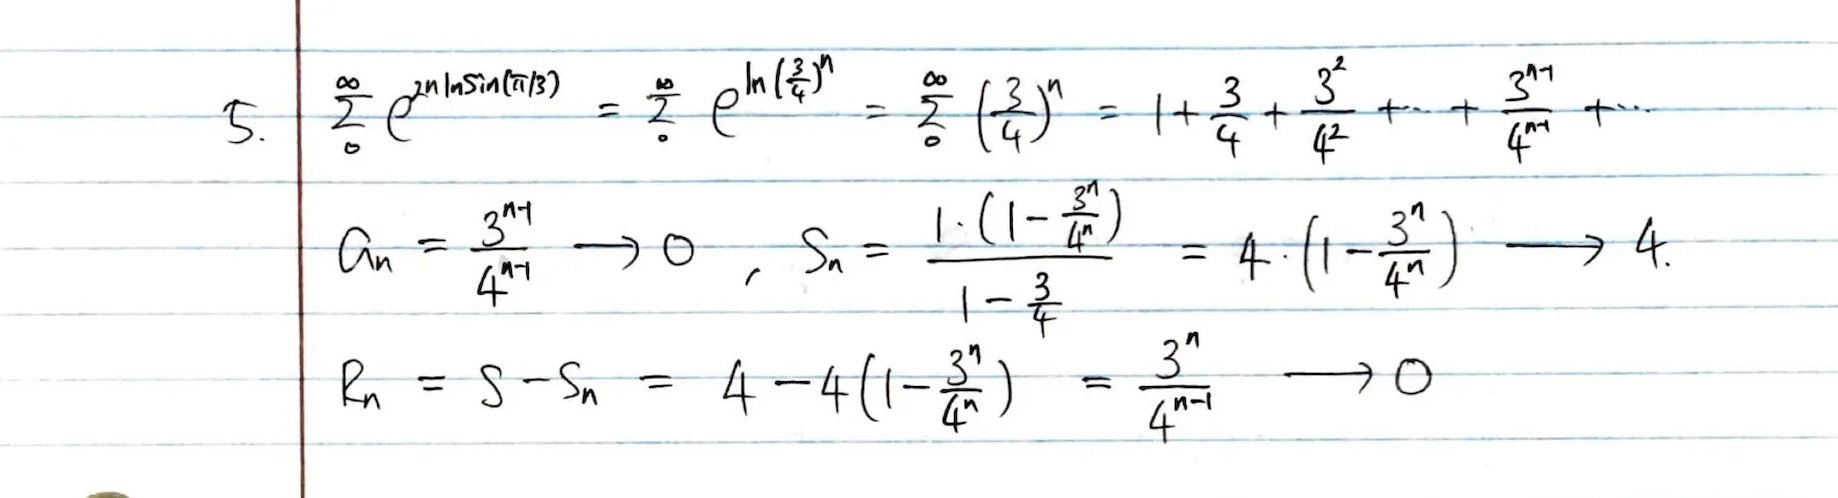 5. $\sum_{0}^{\infty} e^{2n \ln \sin(\pi/3)} = \sum_{0}^{\infty} e^{\ln (\frac{3}{4})^n} = \sum_{0}^{\infty} (\frac{3}{4})^n = 1 + \frac{3}{4} + \frac{3^2}{4^2} + \cdots + \frac{3^{n-1}}{4^{n-1}} + \cdots$
$a_n = \frac{3^{n-1}}{4^{n-1}} \longrightarrow 0 , S_n = \frac{1 \cdot (1 - \frac{3^n}{4^n})}{1 - \frac{3}{4}} = 4 \cdot (1 - \frac{3^n}{4^n}) \longrightarrow 4.$
$R_n = S - S_n = 4 - 4(1 - \frac{3^n}{4^n}) = \frac{3^n}{4^{n-1}} \longrightarrow 0$